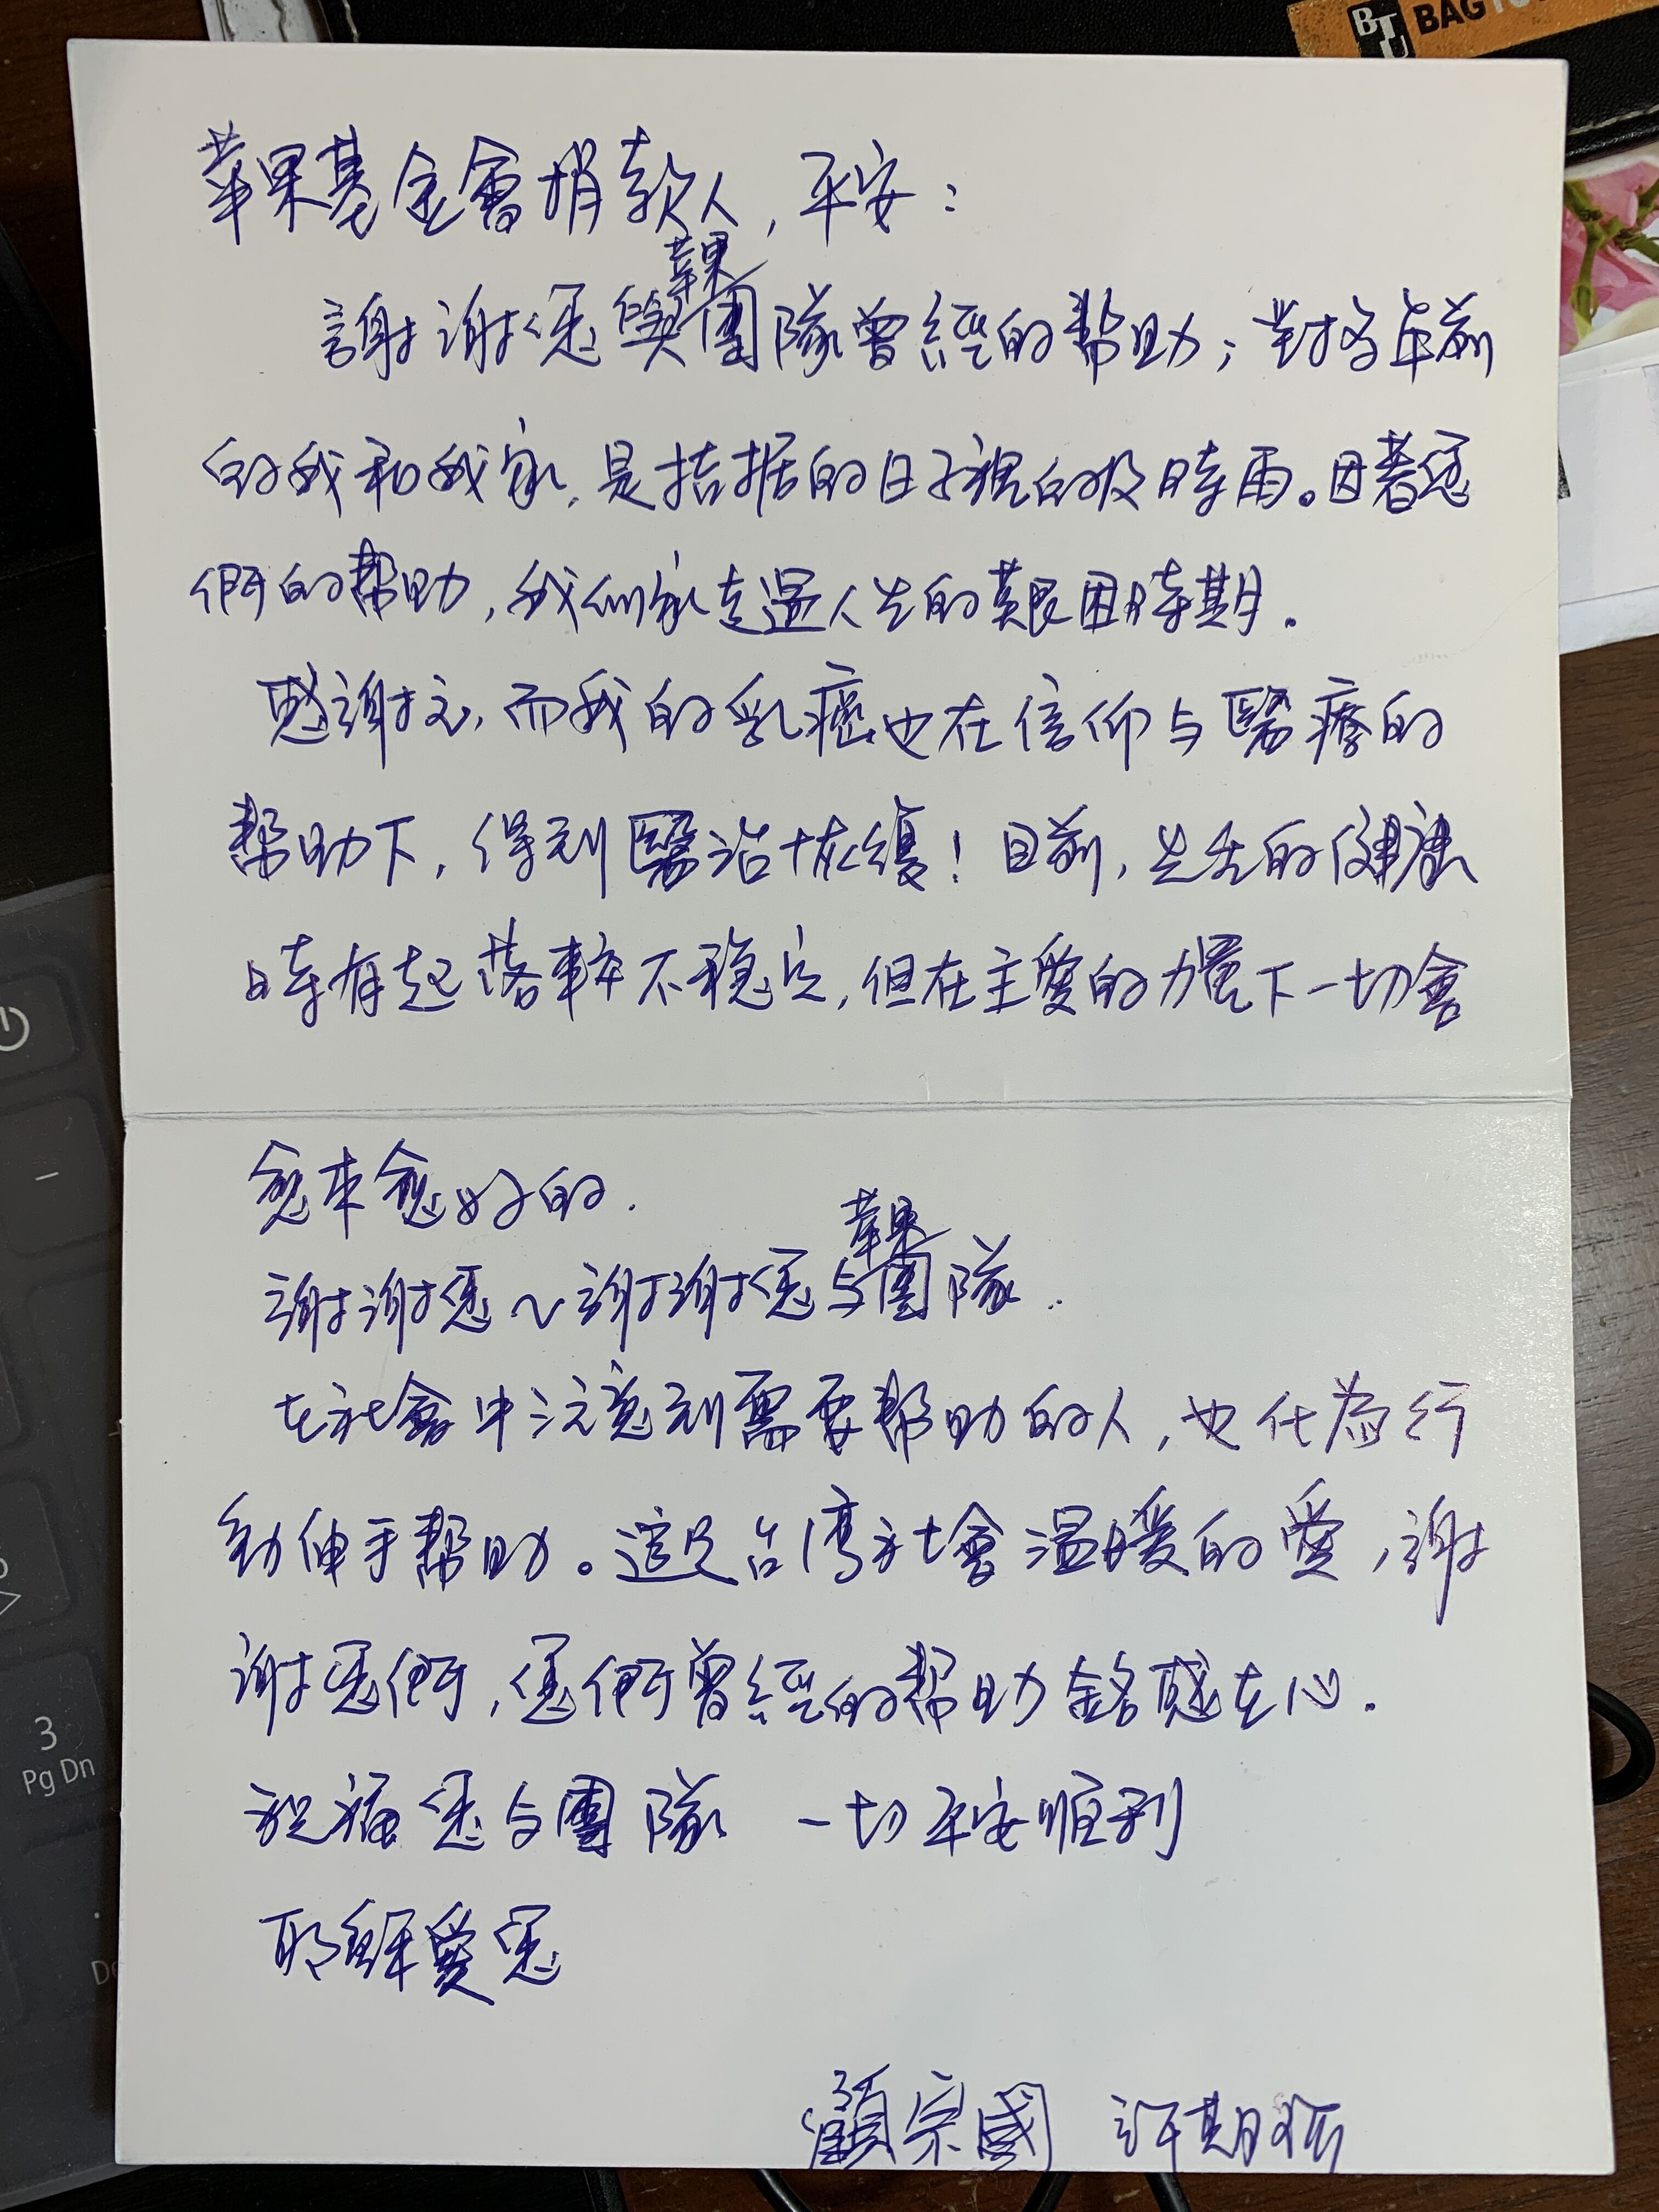 BTU BAGTO
蘋果基金會捐款人，平安：
謝謝您與蘋果團隊曾經的幫助；對多年前
的我和我家，是拮据的日子裡的及時雨。因著您
們的幫助，我們家走過人生的艱困時期．
感謝主，而我的乳癌也在信仰与醫療的
帮助下，得到醫治恢復！目前，先生的健康
時有起落較不穩定，但在主愛的力量下一切會
愈來愈好的．
謝謝您～謝謝您与蘋果團隊．
在社會中注意到需要帮助的人，也化為行
動伸手帮助。這是台灣社會溫暖的愛，謝
謝您們，您們曾經的帮助銘感在心．
祝福您与團隊 一切平安順利
耶穌愛您
顧宗國 許期
3
Pg Dn